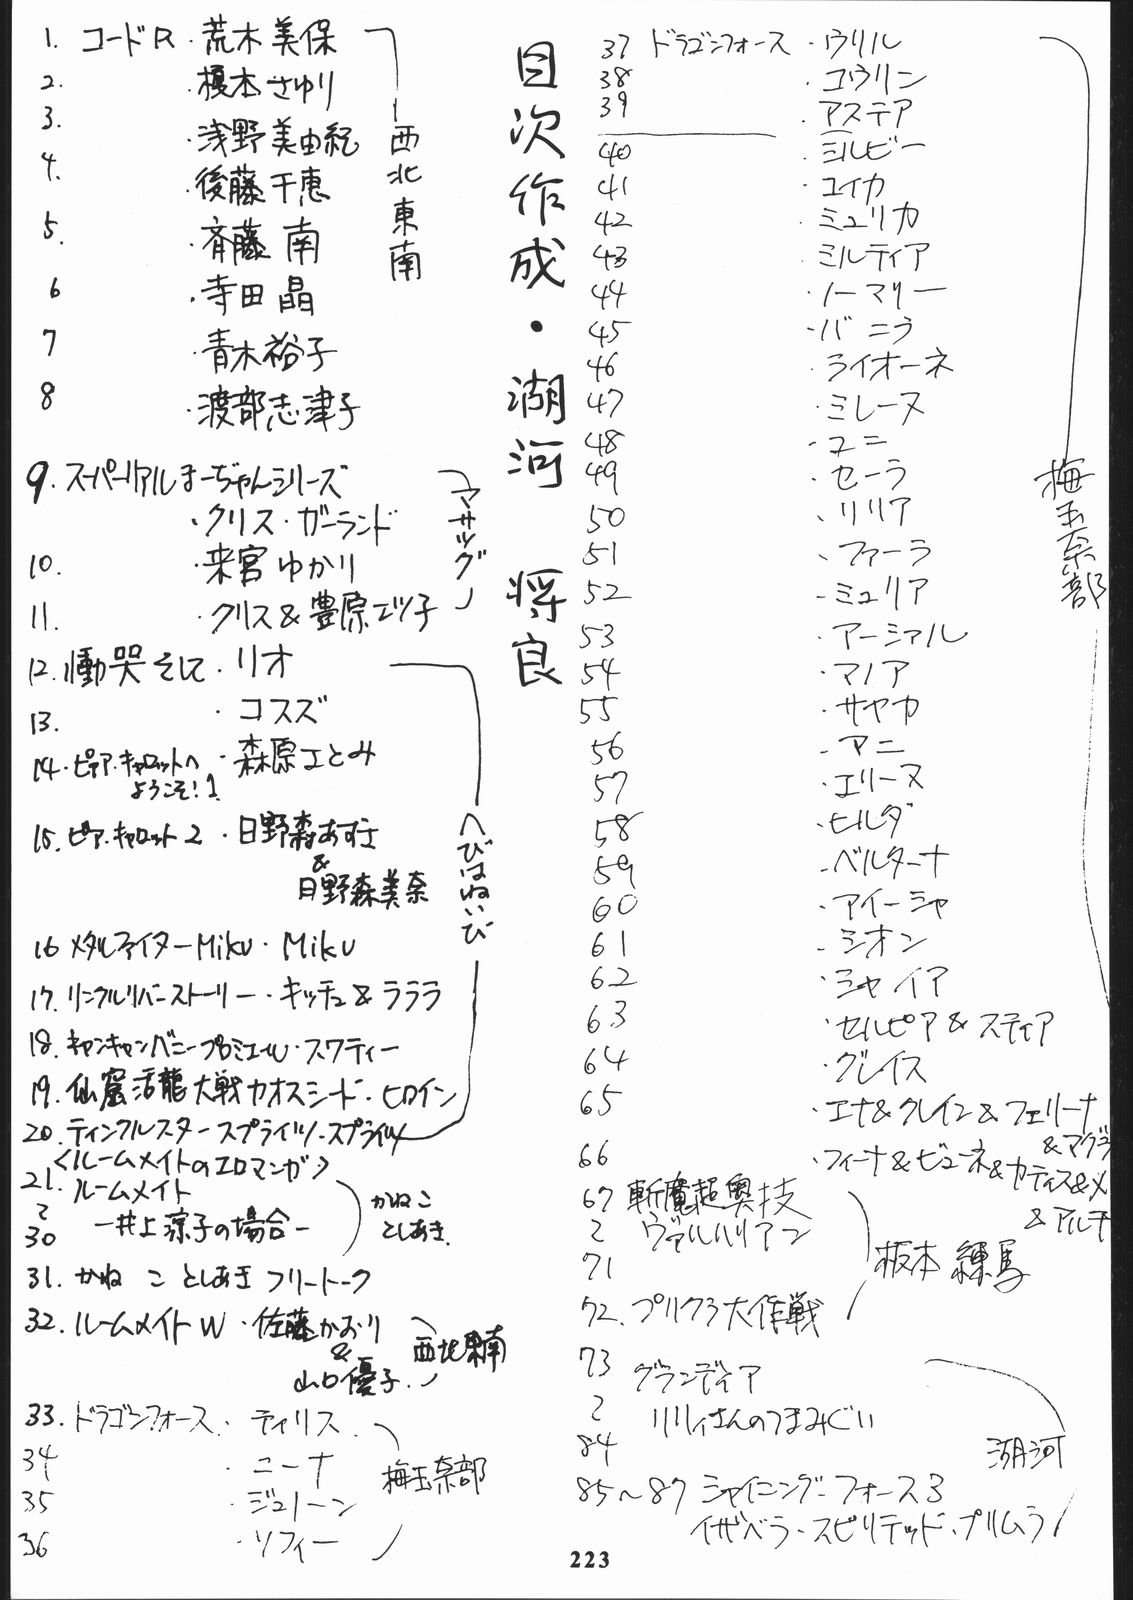 1. コードR・荒木美保
2. 榎本さゆり
3. ・浅野美由紀
4. ・後藤千恵
5. ・斉藤 南
6 ・寺田 晶
7 ・青木裕子
8 ・渡部志津子
西北東南
9. スーパーリアルまーぢゃんシリーズ
・クリス・ガーランド
10. ・来宮ゆかり
11. ・クリス&豊原エツ子
マサツグ
12. 慟哭そして・リオ
13. ・コスズ
14・ピア・キャロットへ ・森原さとみ
ようこそ!
15. ピア・キャロット2・日野森あずさ
&
日野森美奈
16 メタルファイターMiku・Miku
17. リンクルリバーストーリー・キッチュ&ラララ
18. キャンキャンバニープルミエール・スワティー
19. 仙窟活龍大戦カオスシード・ヒロイン
20. ティンクルスタースプライツ・スプライツ
へびはねいび
<ルームメイトのエロマンガ>
21. ルームメイト
〜 ー井上涼子の場合ー
30
かねこ
としあき
31. かねことしあきフリートーク
32. ルームメイトW・佐藤かおり
&
山口優子
西北東南
33. ドラゴンフォース・ティリス
34 ・ニーナ
35 ・ジュリーン
36 ・ソフィー
梅玉奈部
目次作成・湖河 将良
37 ドラゴンフォース・ウリル
38 ・コウリン
39 ・アステア
40 ・シルビー
41 ・ユイカ
42 ・ミュリカ
43 ・ミルティア
44 ・ノーマリー
45 ・バニラ
46 ・ライオーネ
47 ・ミレーヌ
48 ・ユニ
49 ・セーラ
50 ・リリア
51 ・ファーラ
52 ・ミュリア
53 ・アーシァル
54 ・マノア
55 ・サヤカ
56 ・アニ
57 ・エリーヌ
58 ・ヒルダ
59 ・ベルターナ
60 ・アイーシャ
61 ・シオン
62 ・シャイア
63 ・セルピア&スティア
64 ・グレイス
65 ・エナ&クレイン&フェリーナ
&マグラ
66 ・フィーナ&ビューネ&カーティス&メ
&アルチ
梅玉奈部
67 斬魔超奥技
〜 ヴァルハリアン
71
72. プリクラ大作戦
板本 練馬
73 グランディア
〜 リリィさんのつまみぐい
84
85〜87 シャイニング・フォース3
イザベラ・スピリテッド・プリムラ
湖河
223